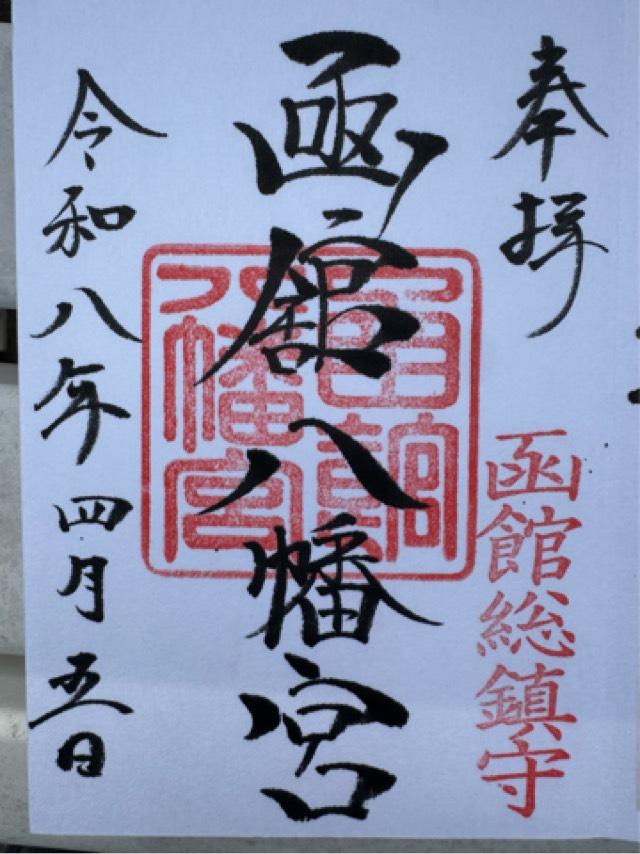 奉拝
函館総鎮守
函館八幡宮
函館八幡宮
令和八年四月五日